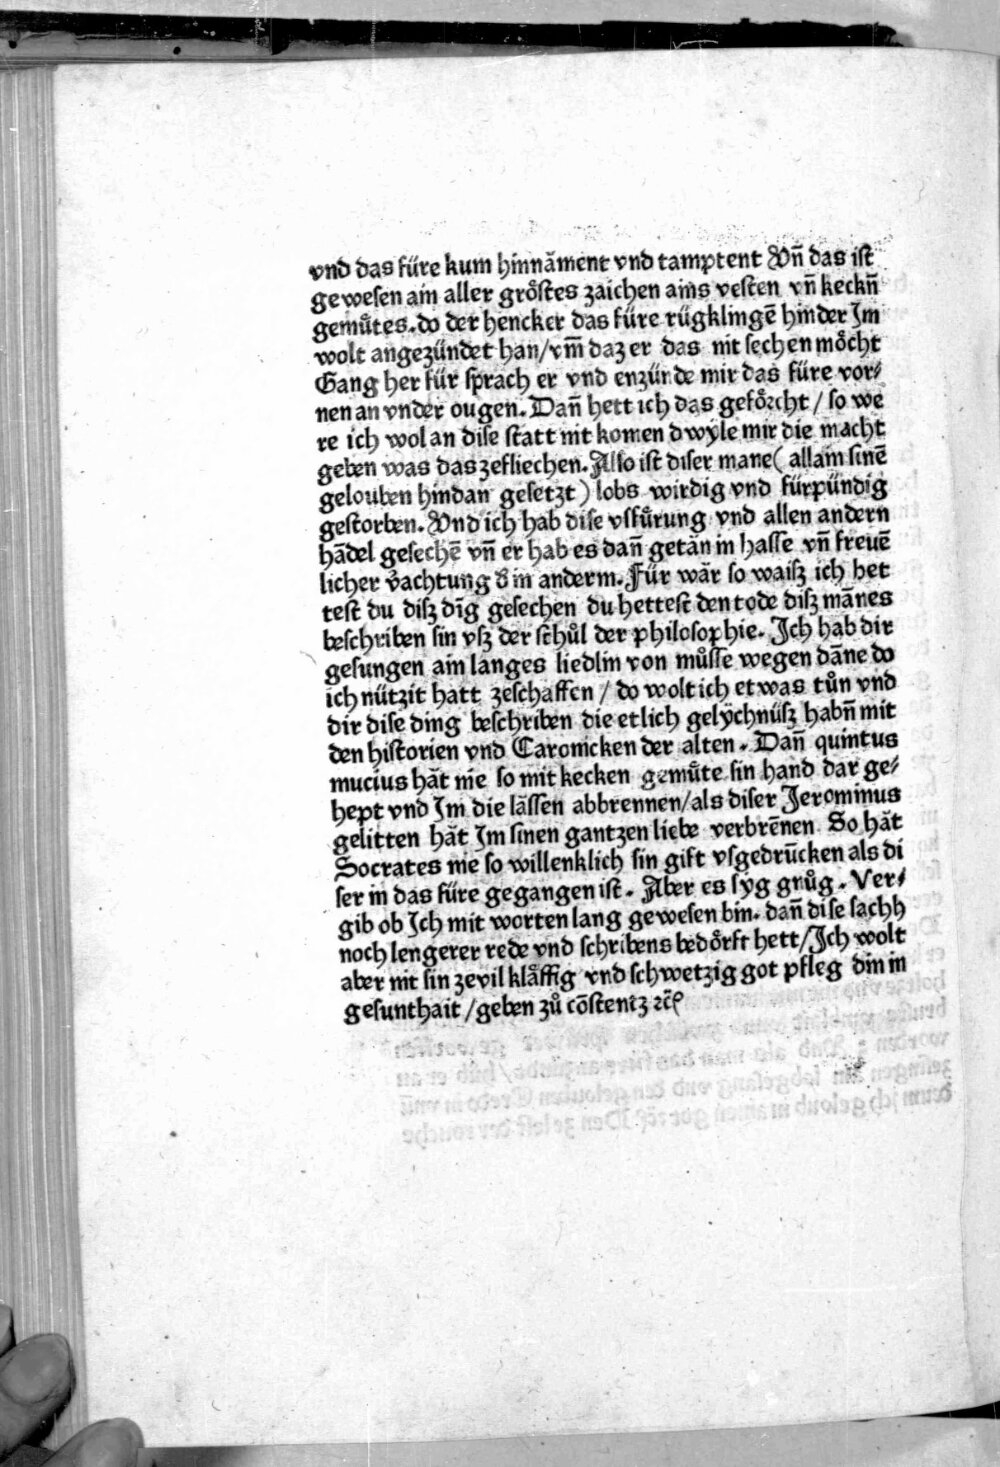 vnd das füre kum hinnāment vnd tamptent Vn̄ das ist
gewesen ain aller gröstes zaichen ains vesten vn̄ keckn̄
gemůtes. do der hencker das füre rügklingē hinder Im
wolt angezündet han/vm̄ daz er das nit sechen möcht
Gang her für sprach er vnd enzünde mir das füre vor⸗
nen an vnder ougen. Dan̄ hett ich das geförcht / so we
re ich wol an dise statt nit komen dwyle mir die macht
geben was das zefliechen. Also ist diser mane ( allain sinē
gelouben hindan gesetzt ) lobs wirdig vnd fürpündig
gestorben. Vnd ich hab dise vsfůrung vnd allen andern
hādel gesechē vn̄ er hab es dan̄ getān in hasse vn̄ freuē
licher v̄achtung d̕ in anderm. Für wār so waisz ich het
test du disz dīg gesechen du hettest den tode disz mānes
beschriben sin vsz der schůl der philosophie. Ich hab dir
gesungen ain langes liedlin von můsse wegen dāne do
ich nützit hatt zeschaffen / do wolt ich etwas tůn vnd
dir dise ding beschriben die etlich gelÿchnüsz habn̄ mit
den historien vnd Caronicken der alten. Dan̄ quintus
mucius hāt nie so mit kecken gemůte sin hand dar ge⸗
hept vnd Im die lāssen abbrennen/als diser Jeronimus
gelitten hāt Im sinen gantzen liebe verbrēnen So hāt
Socrates nie so willenklich sin gift vsgedrūcken als di
ser in das füre gegangen ist. Aber es syg gnůg. Ver⸗
gib ob Ich mit worten lang gewesen bin. dan̄ dise sachh
noch lengerer rede vnd schribens bedörft hett/Ich wolt
aber nit sin zevil kläffig vnd schwetzig got pfleg din in
gesunthait /geben zů cōstentz ꝛc̄